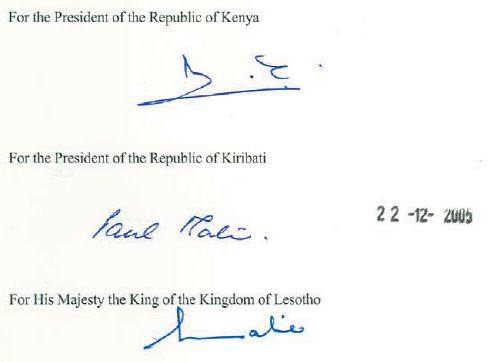 For the President of the Republic of Kenya
For the President of the Republic of Kiribati
22 -12- 2005
Paul Mali.
For His Majesty the King of the Kingdom of Lesotho